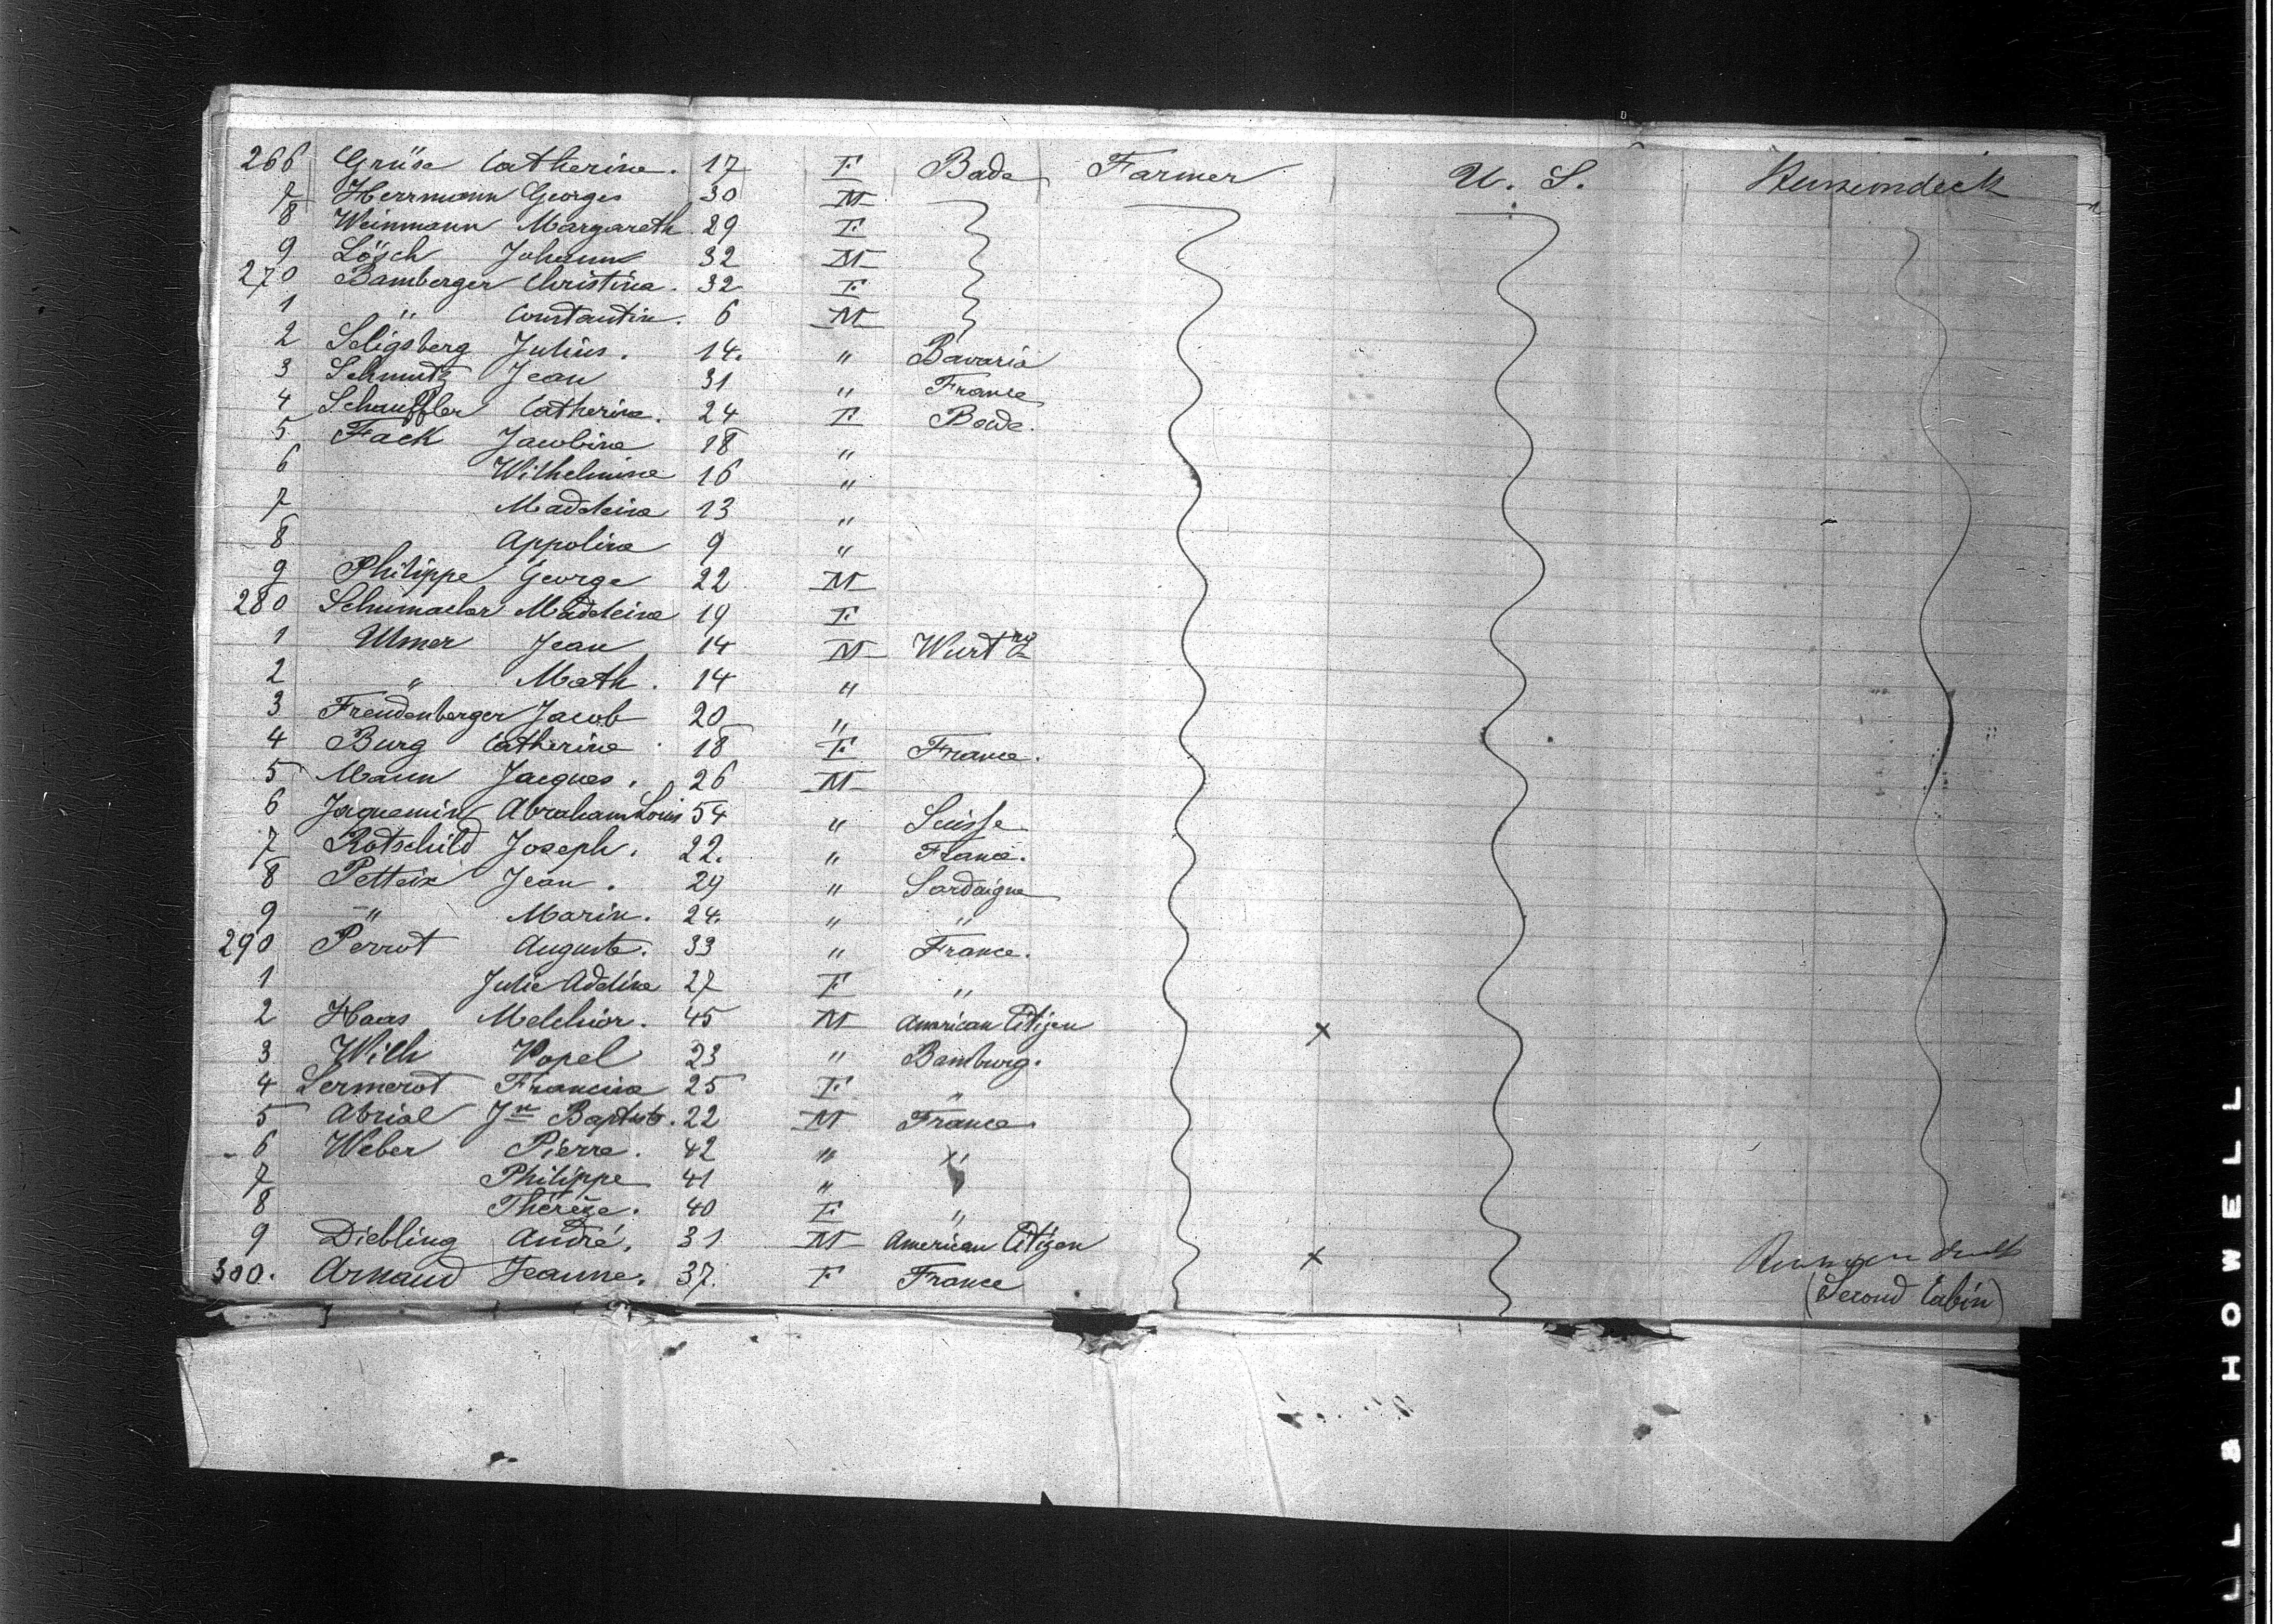 266 Grüse Catherine. 17 F Bade Farmer U. S.
7 Herrmann Georges 30 M
8 Weinmann Margareth. 29 F
9 Lösch Johann 32 M
270 Bamberger Christina. 32 F
1 " Constantin. 6 M
2 Seligsberg Julius. 14. " Bavaria
3 Schmutz Jean 31 " France
4 Schauffler Catherine. 24 F Bade.
5 Fack Jacobina 18 "
6 Wilhelmine 16 "
7 Madeleine 13 "
8 Appolina 9 "
9 Philippe George 22 M
280 Schumacher Madeleine 19 F
1 Ulmer Jean 14 M Wurtbg
2 " Math. 14 "
3 Freudenberger Jacob 20 "
4 Burg Catherine. 18 F France.
5 Mann Jacques. 26 M
6 Jaquemin Abraham Louis 54 " Suisse
7 Rotschild Joseph. 22. " France.
8 Petteix Jean. 29 " Sardaigne
9 " Marin. 24. " "
290 Perrot Auguste. 33 " France.
1 Julie Adeline 27 F "
2 Haas Melchior. 45 M American Citizen x
3 Wilh Vopel 23 " Bamburg.
4 Lermerot Francina 25 F "
5 Abrial Jn Baptiste. 22 M France
6 Weber Pierre. 42 " "
7 Philippe 41 "
8 Thérèze. 40 F "
9 Diebling André. 31 M American Citizen x
300. Arnaud Jeanne. 37. F France
(Second Cabin)
LL & HOWELL